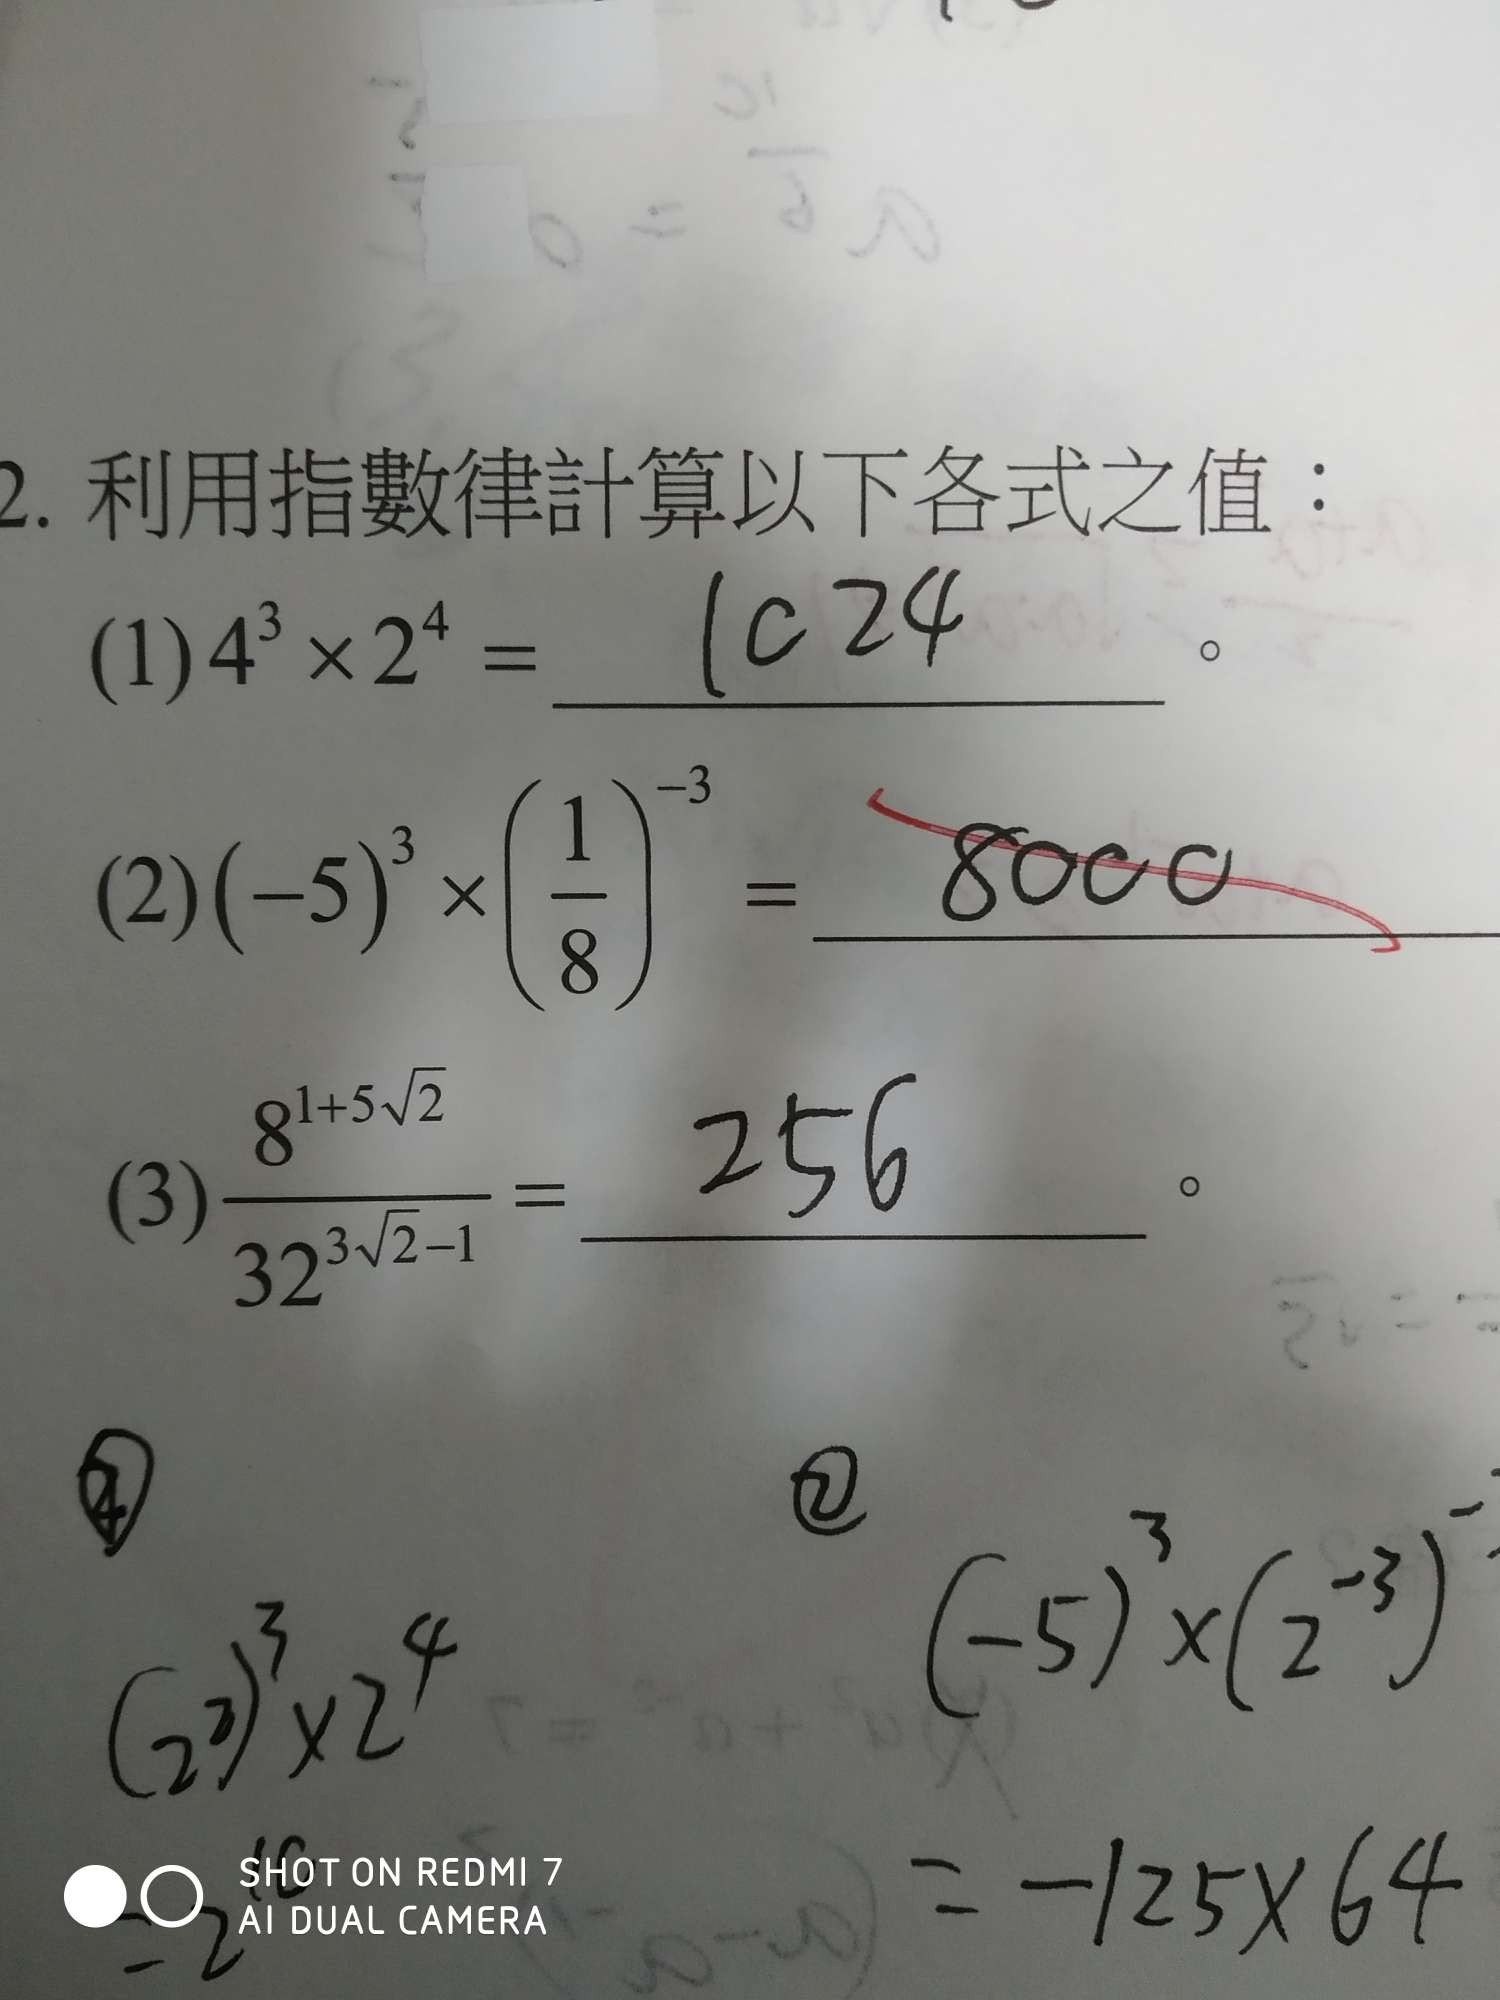 2. 利用指數律計算以下各式之值：
(1) 4³ × 2⁴ = 1024 。
(2) (−5)³ × (1/8)⁻³ = 8000
(3) 8^(1+5√2) / 32^(3√2−1) = 256 。
②
(2²)³ × 2⁴
= 2¹⁰
(−5)³ × (2⁻³)
= −125 × 64
SHOT ON REDMI 7
AI DUAL CAMERA